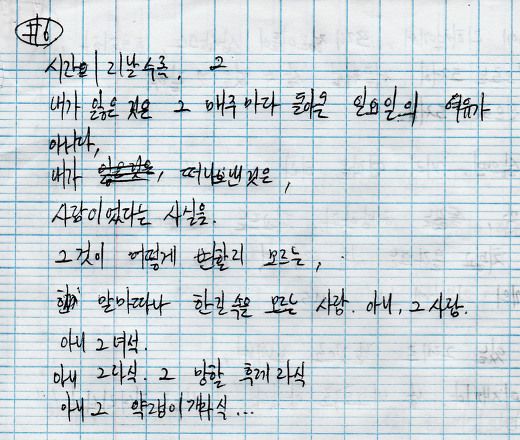 #6
시간이 지날수록, 그
내가 잃은 것은 그 매주마다 돌아온 일요일의 여유가
아니다,
내가 잃은것은, 떠나보낸것은,
사람이었다는 사실을.
그것이 어떻게 변할지 모르는,
말마따나 한길속은 모르는 사람. 아니, 그 사람.
아니 그녀석.
아니 그자식. 그 망할 후레자식
아니 그 개자식...